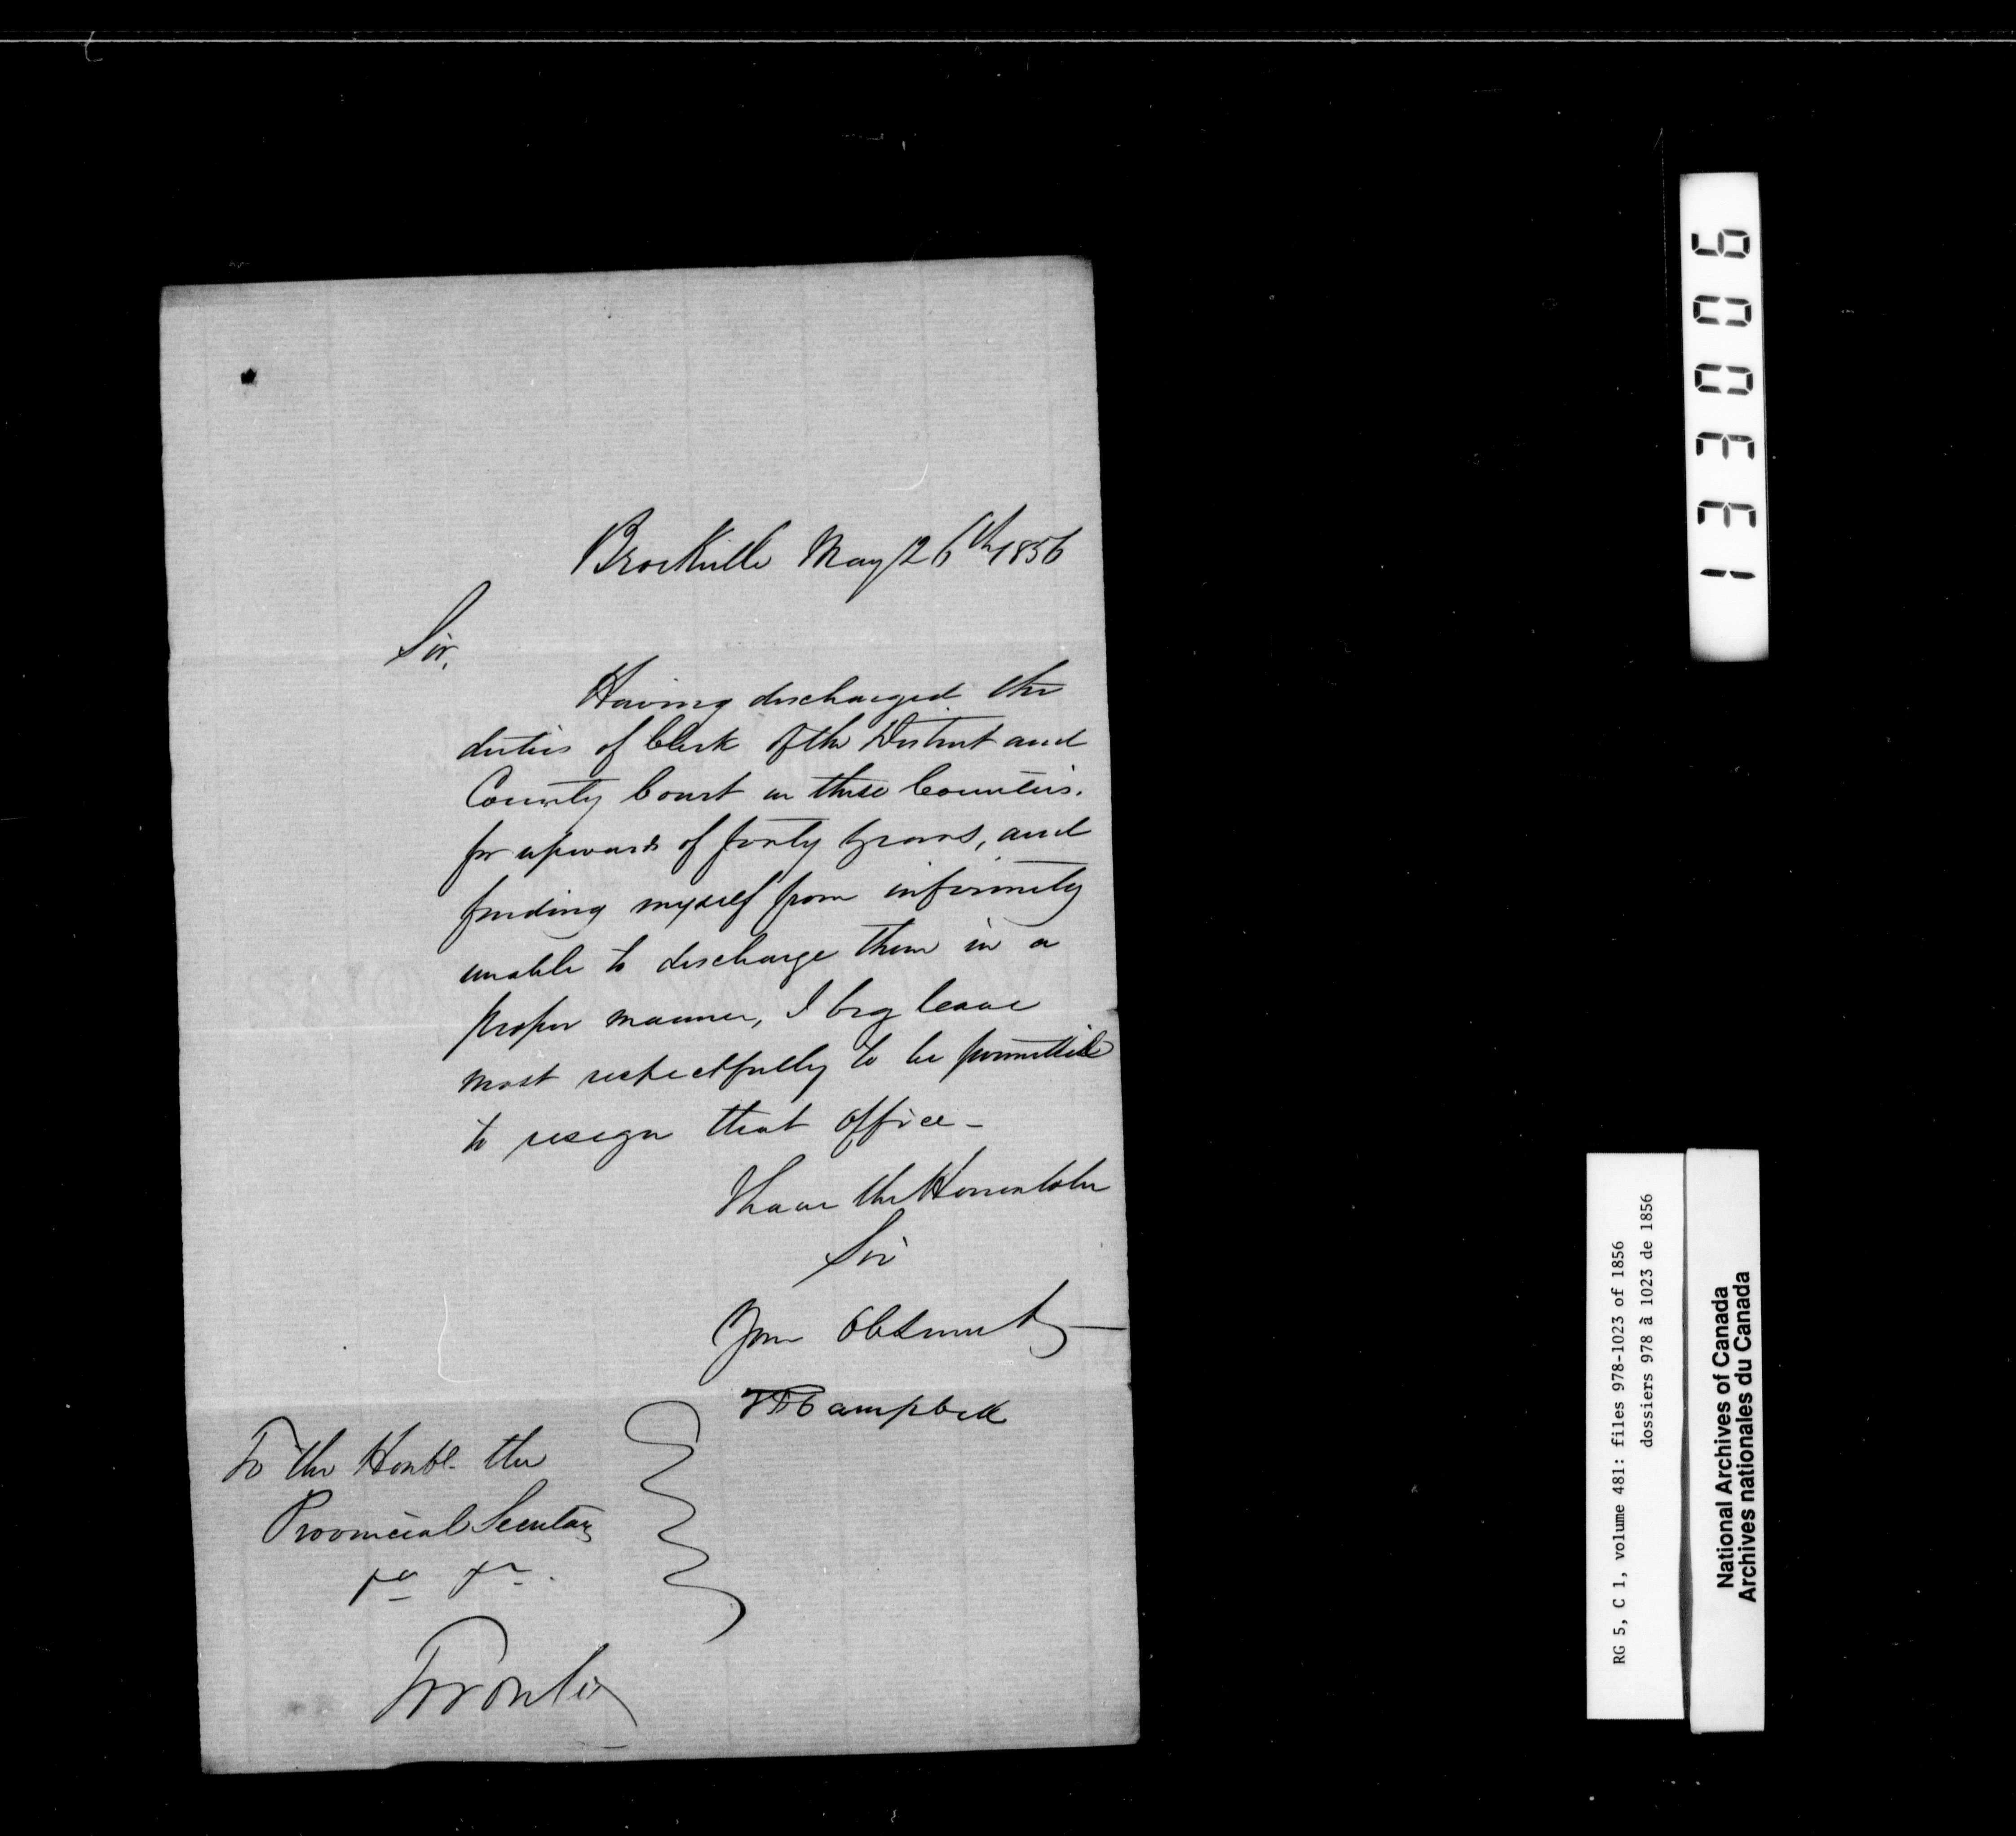 Brockville May 26th 1856
Sir,
Having discharged the
duties of Clerk of the District and
County Court in these Counties.
for upwards of forty years, and
finding myself from infirmity
unable to discharge them in a
proper manner, I beg leave
most respectfully to be permitted
to resign that office -
I have the Honor to be
Sir
Your Obt Servant
Campbell
To the Honbl. the
Provincial Secretary
Toronto
133006
RG 5, C 1, volume 481: files 978-1023 of 1856
dossiers 978 à 1023 de 1856
National Archives of Canada
Archives nationales du Canada